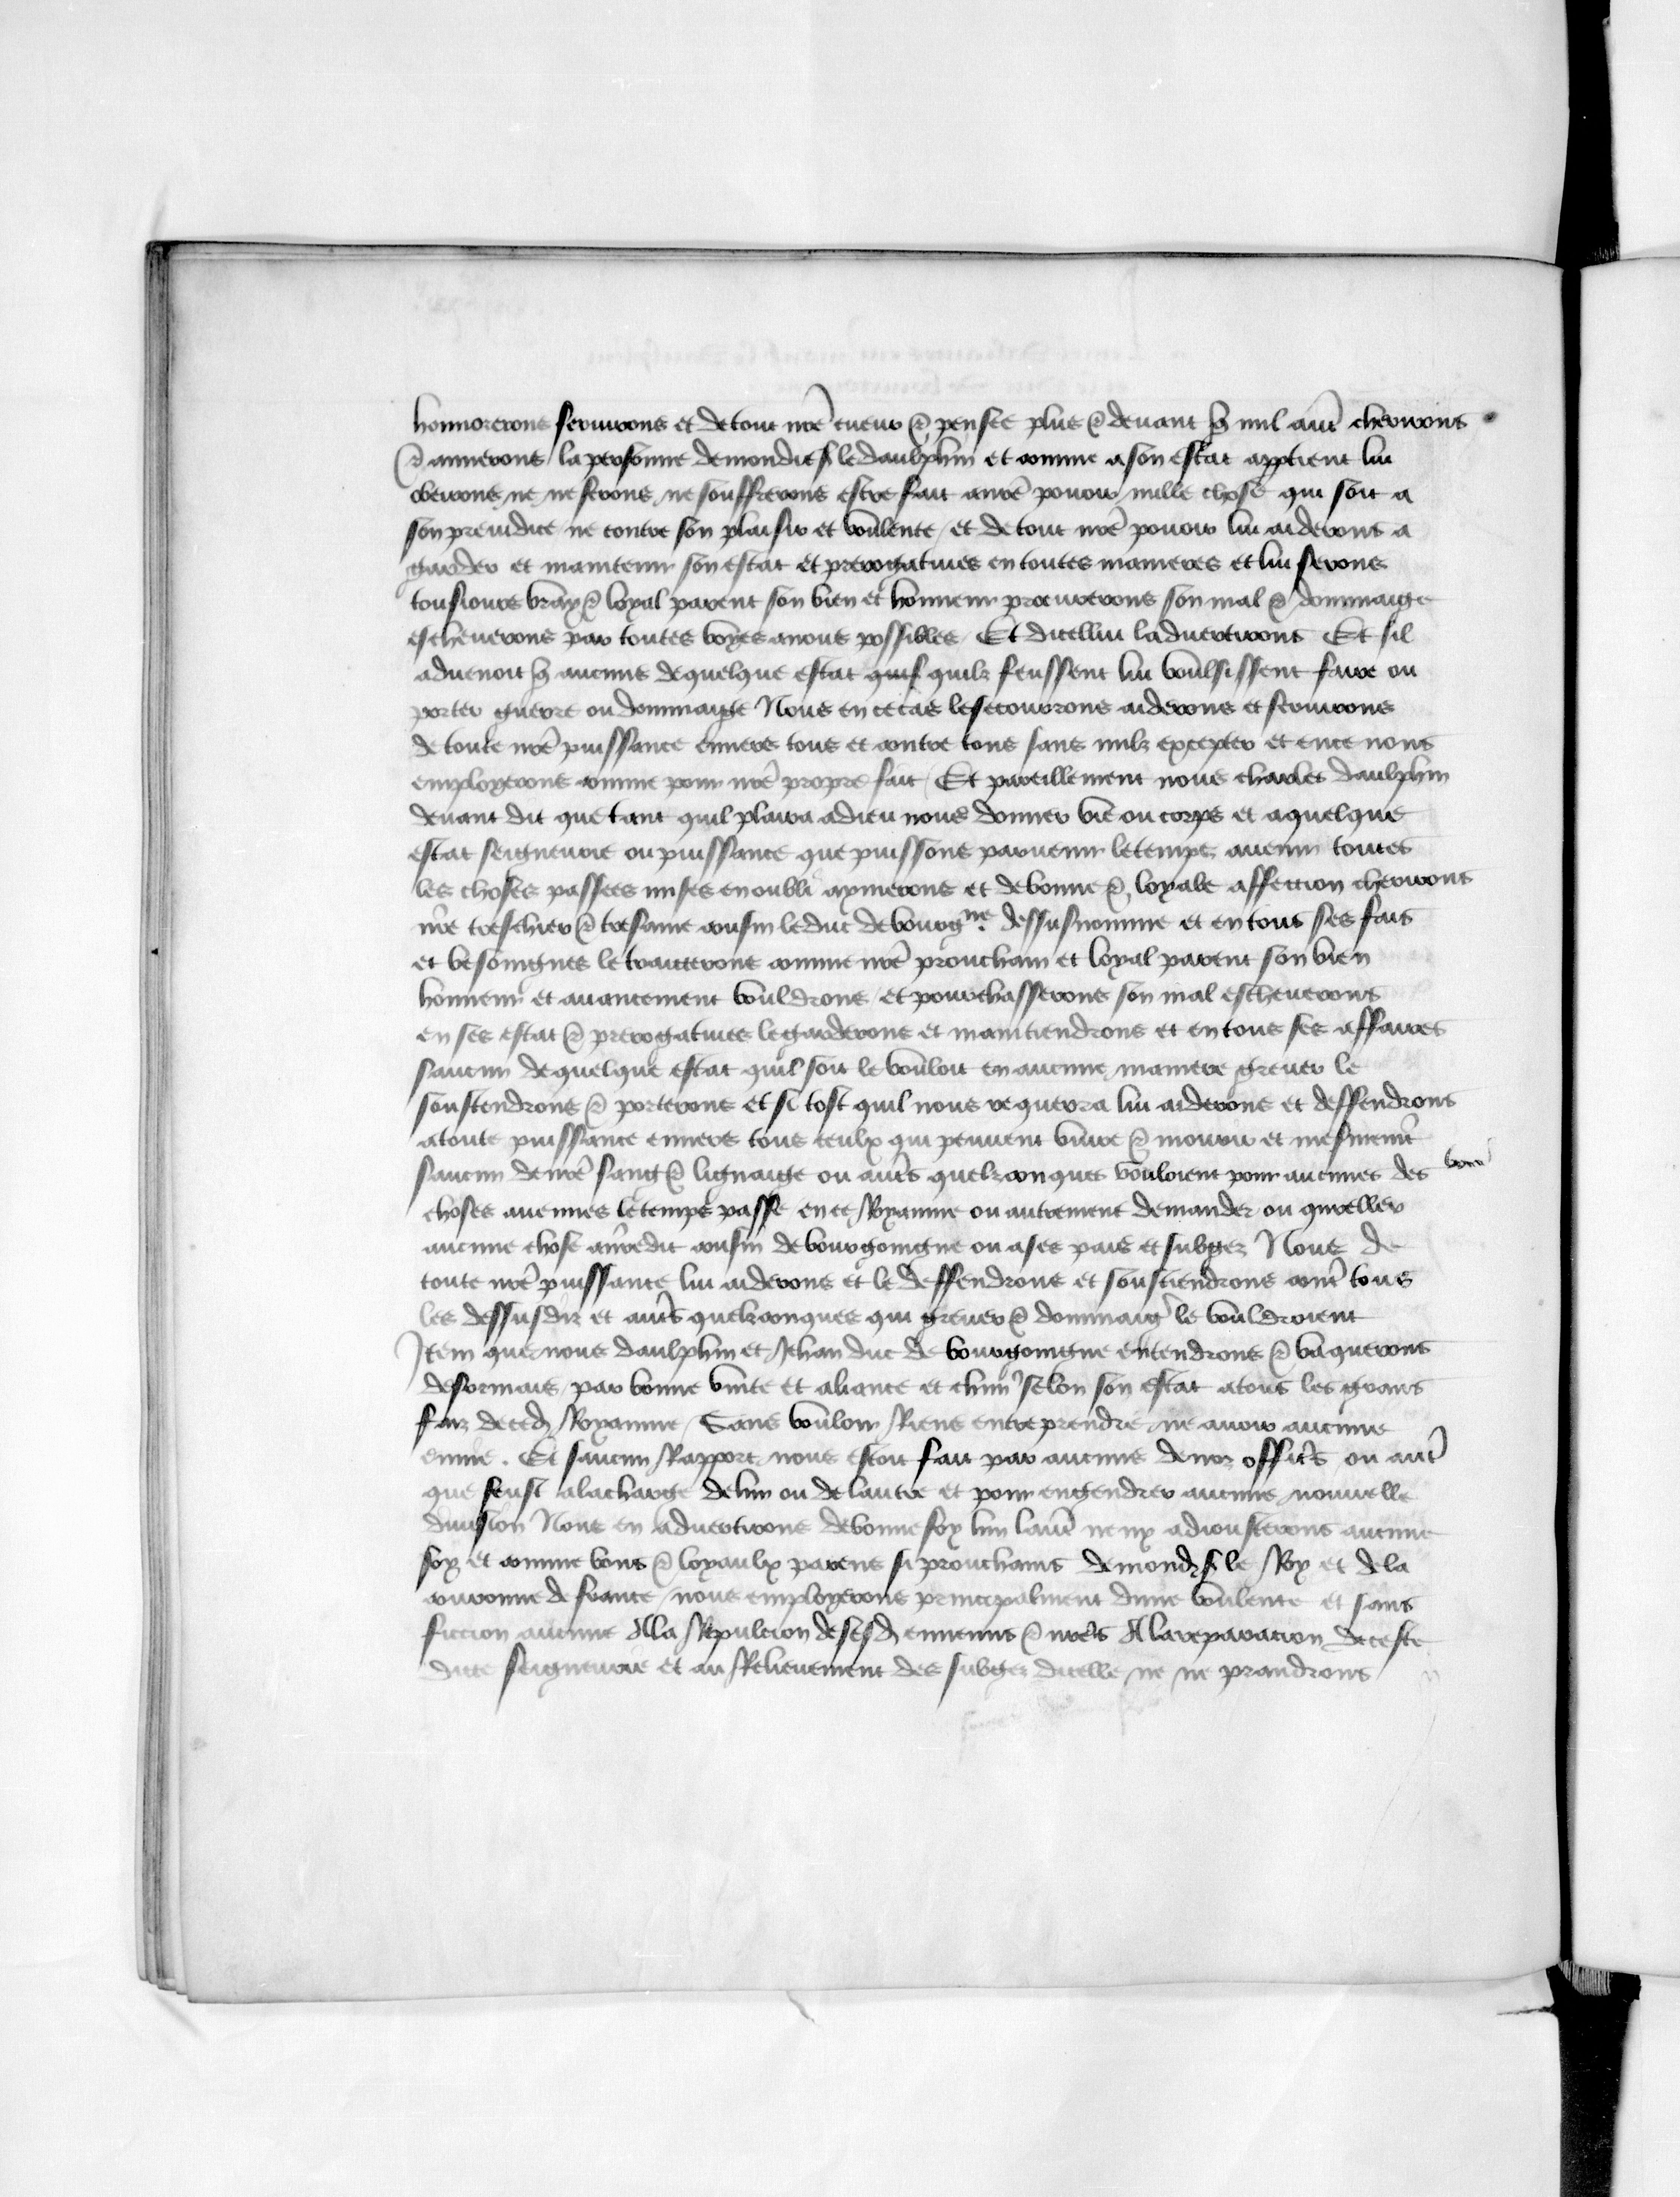 honnorerons seruirons et de tout nrẽ cueur & pensee plus & deuant q̃ nul autr̃ cherirons
& aimerons la personne de mondit s le daulphin et comme a son estat apptient lui
obeirons ne ne ferons ne souffrerons estre fait a nrẽ pouoir nulle chose qui soit a
son preiudice ne contre son plaisir et voulente / et de tout nrẽ pouoir lui aiderons a
garder et maintenir son estat et prerogatiues en toutes manieres et lui serons
tousiours vray & loyal parent son bien et honneur procurerons son mal & dommaige
escheuerons par toutes voyes a nous possibles / Et dicellui laduertirons Et sil
aduenoit q̃ aucuns de quelque estat quilz feussent lui voulsissent faire ou
porter guerre ou dommaige Nous en ce cas le secourrons aiderons et seruirons
de toute nrẽ puissance enuers tous et contre tous sans nulz excepter et en ce nous
employerons comme pour nrẽ propre fait / Et pareillement nous charles daulphin
deuant dit que tant quil plaira a dieu nous donner vie ou corps et a quelque
estat seigneurie ou puissance que puissons paruenir le temps auenir toutes
les choses passees mises en oubli aymerons et de bonne & loyale affection cherirons
nrẽ treschier & tresame cousin le duc de bourgne dessusnomme et en tous ses fais
et besoingnes le traitterons comme nrẽ prouchain et loyal parent son bien
honneur et auancement vouldrons / et pourchasserons son mal escheuerons
en ses estat & prerogatiues le garderons et maintiendrons et en tous ses affaires
saucun de quelque estat quil soit le vouloit en aucune maniere greuer le
soustendrons & porterons et si tost quil nous requerra lui aiderons et deffendrons
a toute puissance enuers tous ceulx qui peuuent viure & mourir et mesmemt
saucun de nrẽ sang & lignaige ou autrs quelzconques vouloient pour aucunes des
choses auenues le temps passe en ce Royaume ou autrement demander ou quereller
aucune chose a nrẽdit cousin de bourgoingne ou a ses pais et subgez Nous de
toute nrẽ puissance lui aiderons et le deffendrons et soustiendrons contr̃ tous
les dessusdiz et autrs quelzconques qui greuer & dommaigr le vouldroient
Item que nous daulphin et Jehan duc de bourgoingne entendrons & vaquerons
desormais par bonne vnite et aliance et chũn selon son estat a tous les grans
faiz de ced Royaume / Sans vouloir Riens entreprendre ne auoir aucune
enuie . Et saucun Rapport nous estoit fait par aucuns de noz officrs ou autr̃
que feust a la charge de lun ou de lautre et pour engendrer aucune nouuelle
diuision Nous en aduertirons de bonne foy lun lautr̃ ne ny adiousterons aucune
foy et comme bons & loyaulx parens si prouchains de mond s le Roy et de la
couronne de france / nous employerons principalment dune voulente et sans
fiction aucune A la Repulcion de sesd ennemis & nrẽs A la reparacion de ceste
dite seigneurie et au Relieuement des subgez dicelle ne ne prandrons